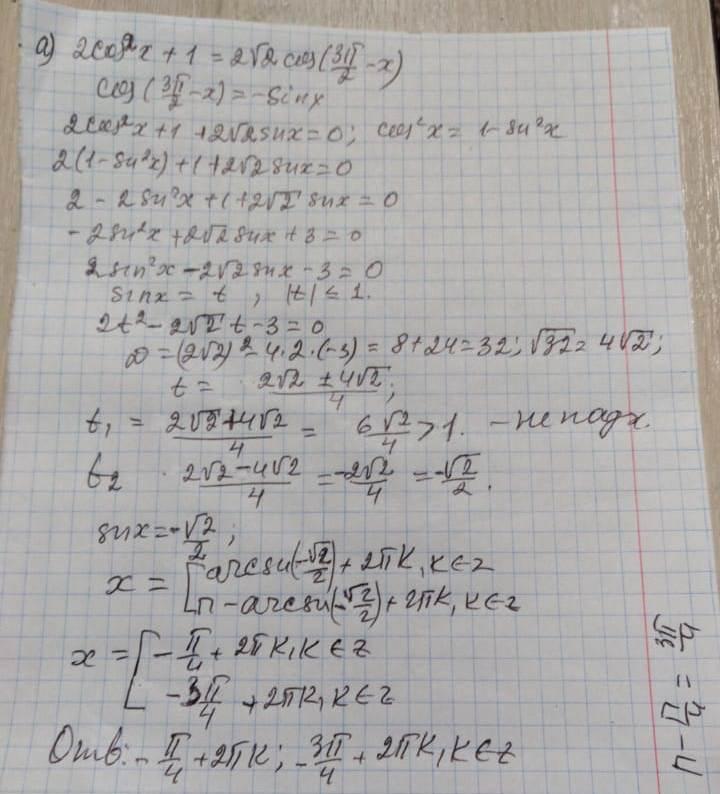 а) 2cos²x + 1 = 2√2 cos(3π/2 - x)
cos(3π/2 - x) = - sinx
2cos²x + 1 + 2√2 sinx = 0; cos²x = 1 - sin²x
2(1 - sin²x) + 1 + 2√2 sinx = 0
2 - 2sin²x + 1 + 2√2 sinx = 0
- 2sin²x + 2√2 sinx + 3 = 0
2sin²x - 2√2 sinx - 3 = 0
sinx = t, |t| ≤ 1.
2t² - 2√2 t - 3 = 0
D = (2√2)² - 4·2·(-3) = 8 + 24 = 32; √32 = 4√2;
t = (2√2 ± 4√2)/4;
t₁ = (2√2 + 4√2)/4 = 6√2/4 > 1. - не подх.
t₂ (2√2 - 4√2)/4 = -2√2/4 = -√2/2.
sinx = -√2/2;
x = [ arcsin(-√2/2) + 2πK, K ∈ Z
π - arcsin(-√2/2) + 2πK, K ∈ Z
x = [ - π/4 + 2πK, K ∈ Z
- 3π/4 + 2πK, K ∈ Z
Отв: - π/4 + 2πK; - 3π/4 + 2πK, K ∈ Z
π - π/4 = 3π/4